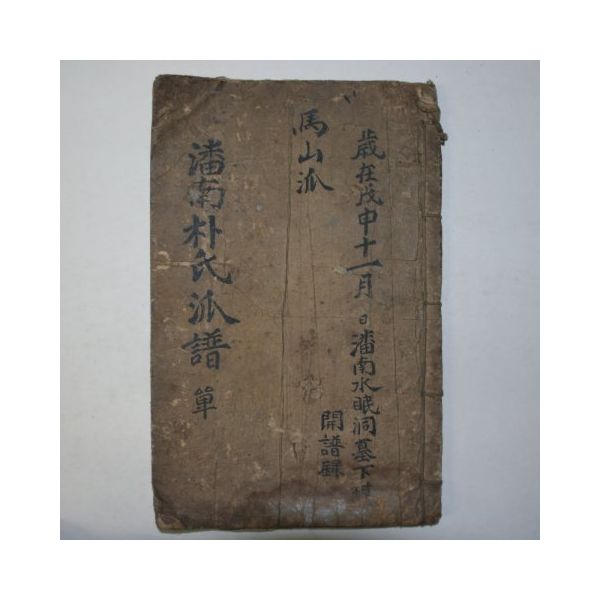 歲在戊申十一月 日潘南水眠洞墓下村
開譜錄
馬山派
潘南朴氏派譜 單